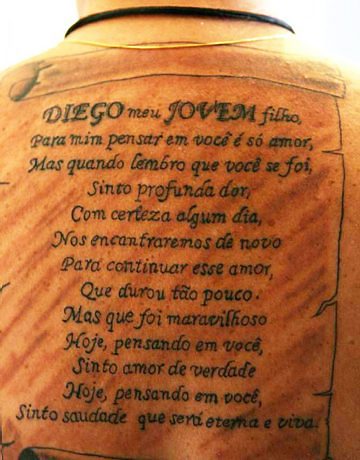 DIEGO meu JOVEM filho,
Para mim pensar em você é só amor,
Mas quando lembro que você se foi,
Sinto profunda dor,
Com certeza algum dia,
Nos encontraremos de novo
Para continuar esse amor,
Que durou tão pouco.
Mas que foi maravilhoso
Hoje, pensando em você,
Sinto amor de verdade
Hoje, pensando em você,
Sinto saudade que será eterna e viva.